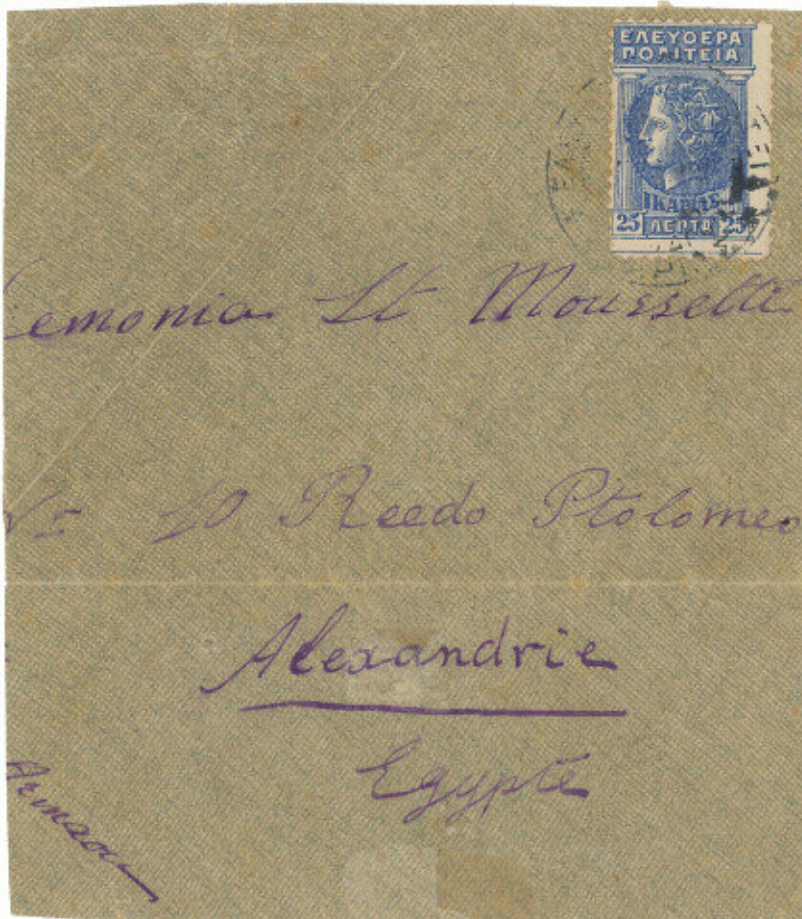 ΕΛΕΥΘΕΡΑ
ΠΟΛΙΤΕΙΑ
ΙΚΑΡΙΑΣ
25 ΛΕΠΤΑ 25
emonia Lt Moussette
No 40 Reedo Ptolomeo
Alexandrie
Egypte